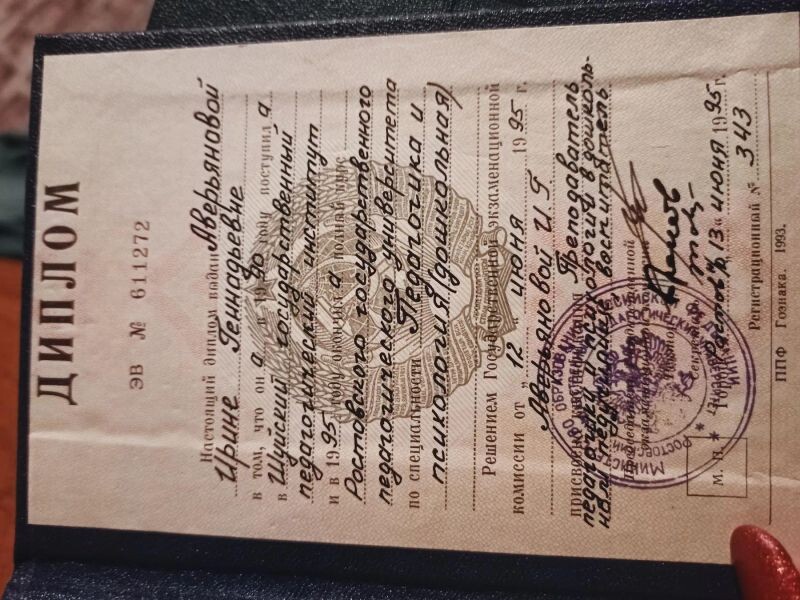 ДИПЛОМ
ЭВ № 611272
Настоящий диплом выдан Аверьяновой
Ирине Геннадьевне
в том, что он а в 19 90 году поступил а
в Шуйский государственный
педагогический институт
и в 19 95 году окончил а полный курс
Ростовского государственного
педагогического университета
по специальности Педагогика и
психология (дошкольная)
Решением Государственной экзаменационной
комиссии от „ 12 “ июня 19 95 г.
Аверьяновой И.Г
присвоена квалификация Преподаватель
педагогики и психологии в дошколь-
ном педучилище воспитатель
М. П.
13 “ июня 19 95 г.
Регистрационный № 343
ППФ Гознака. 1993.